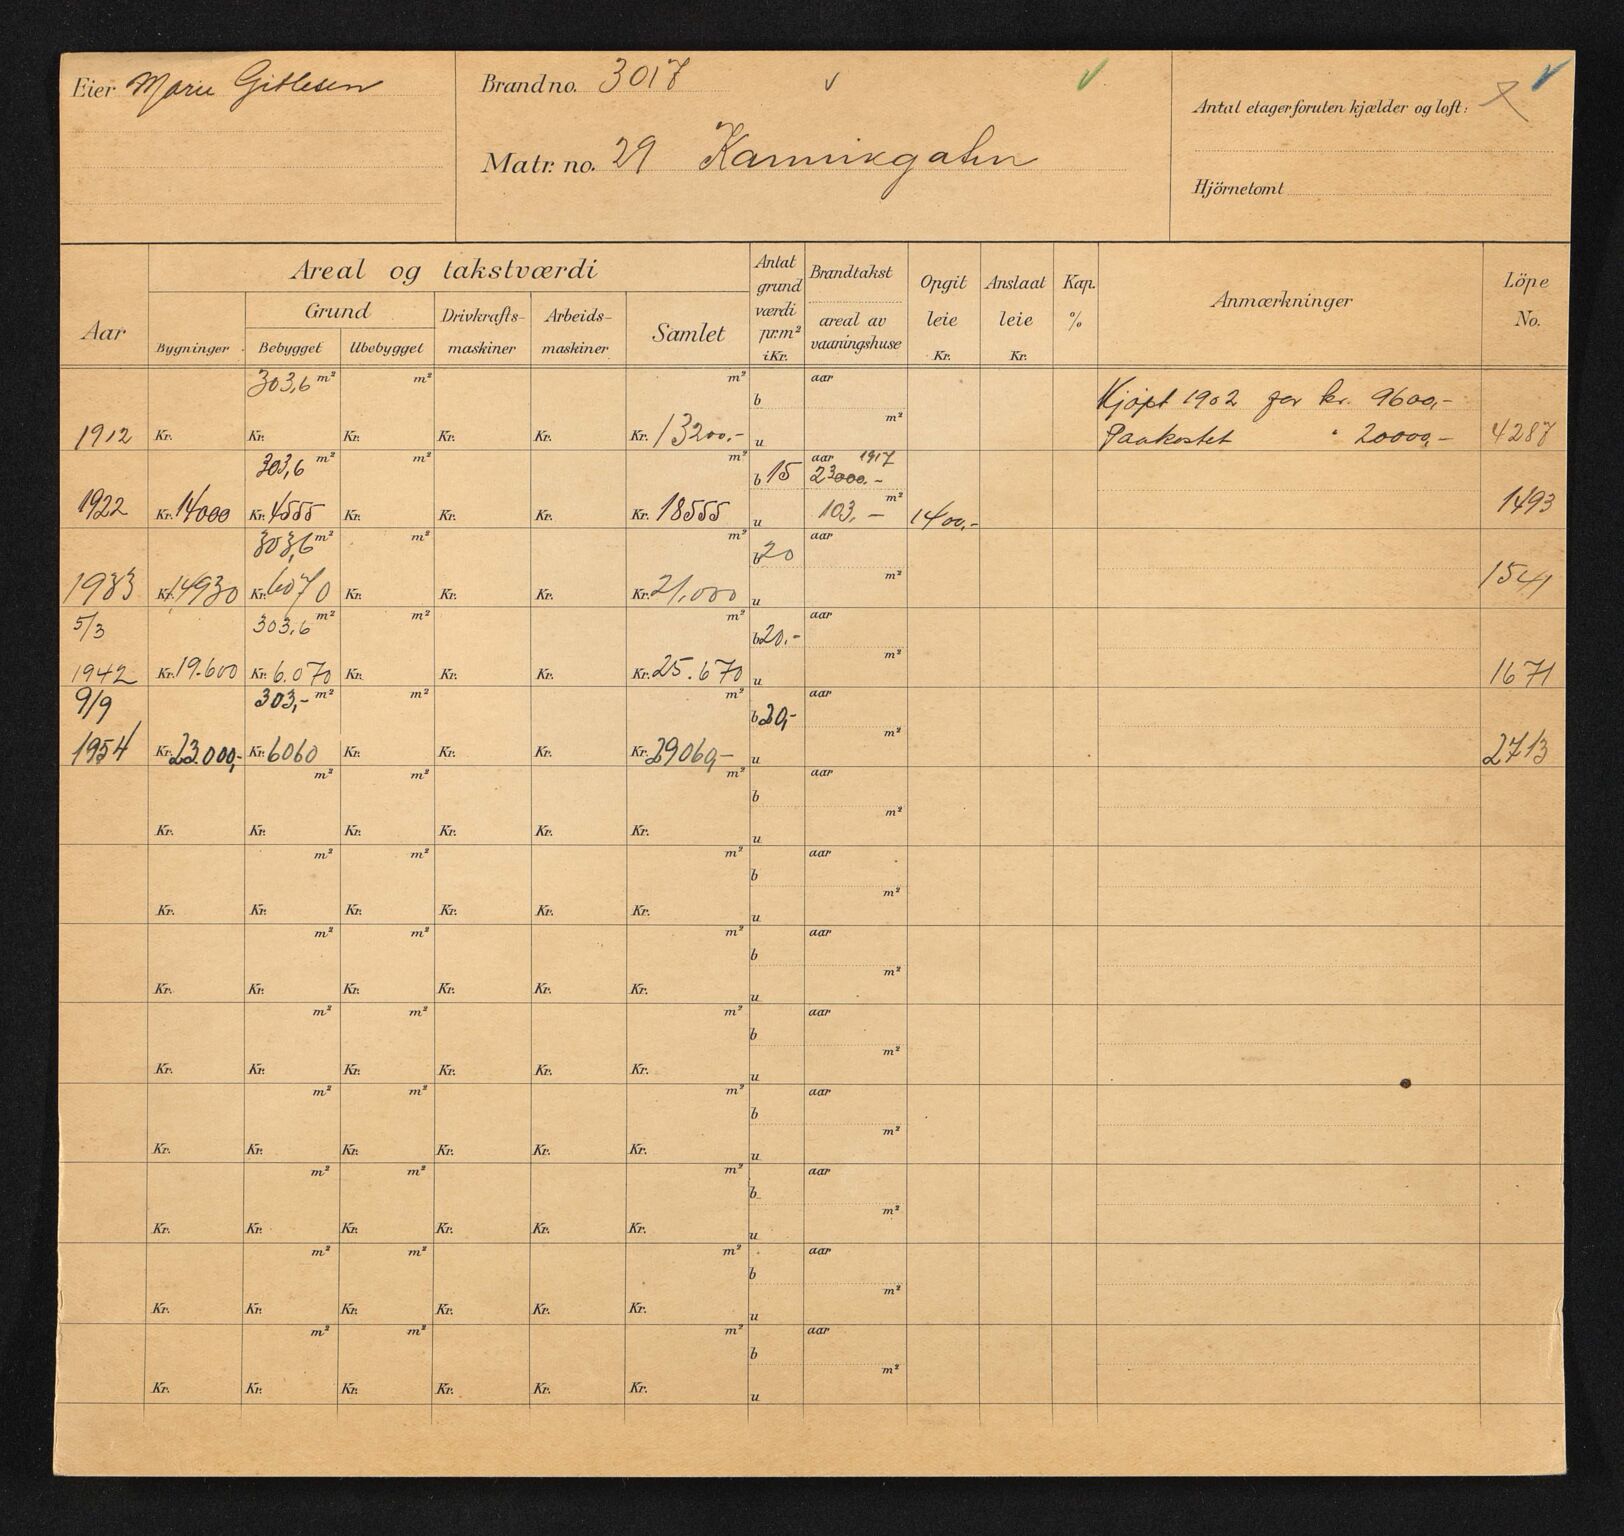 Eier Marie Gitlesen
Brandno. 3017
Matr. no. 29 Kannikgaten
Antal etager foruten kjælder og loft:
Hjörnetomt
Aar
Areal og takstværdi
Grund
Bygninger Bebygget Ubebygget
Drivkrafts-maskiner
Arbeids-maskiner
Samlet
Antal grund værdi pr.m² i Kr.
Brandtakst
areal av vaaningshuse
Opgit leie Kr.
Anslaat leie Kr.
Kap. %
Anmærkninger
Löpe No.
303,6 m² m² m² aar
b
Kjöpt 1902 for kr. 9600,-
m²
1912 Kr. Kr. Kr. Kr. Kr. Kr. 13200.- u Paakostet " 20000,- 4287
303,6 m² m² m² aar 1917
b 15 23000.-
m²
1922 Kr. 14000 Kr. 4555 Kr. Kr. Kr. Kr. 18555 u 103,- 1400,- 1493
303,6 m² m² m² aar
b 20
m²
1933 Kr. 14930 Kr. 6070 Kr. Kr. Kr. Kr. 21.000 u 1541
5/3 303,6 m² m² m² aar
b 20.-
m²
1942 Kr. 19.600 Kr. 6.070 Kr. Kr. Kr. Kr. 25.670 u 1671
9/9 303,- m² m² m² aar
b 20,-
m²
1954 Kr. 23.000,- Kr. 6060 Kr. Kr. Kr. Kr. 29060,- u 2713
m² m² m² aar
b
m²
Kr. Kr. Kr. Kr. Kr. Kr. u
m² m² m² aar
b
m²
Kr. Kr. Kr. Kr. Kr. Kr. u
m² m² m² aar
b
m²
Kr. Kr. Kr. Kr. Kr. Kr. u
m² m² m² aar
b
m²
Kr. Kr. Kr. Kr. Kr. Kr. u
m² m² m² aar
b
m²
Kr. Kr. Kr. Kr. Kr. Kr. u
m² m² m² aar
b
m²
Kr. Kr. Kr. Kr. Kr. Kr. u
m² m² m² aar
b
m²
Kr. Kr. Kr. Kr. Kr. Kr. u
m² m² m² aar
b
m²
Kr. Kr. Kr. Kr. Kr. Kr. u